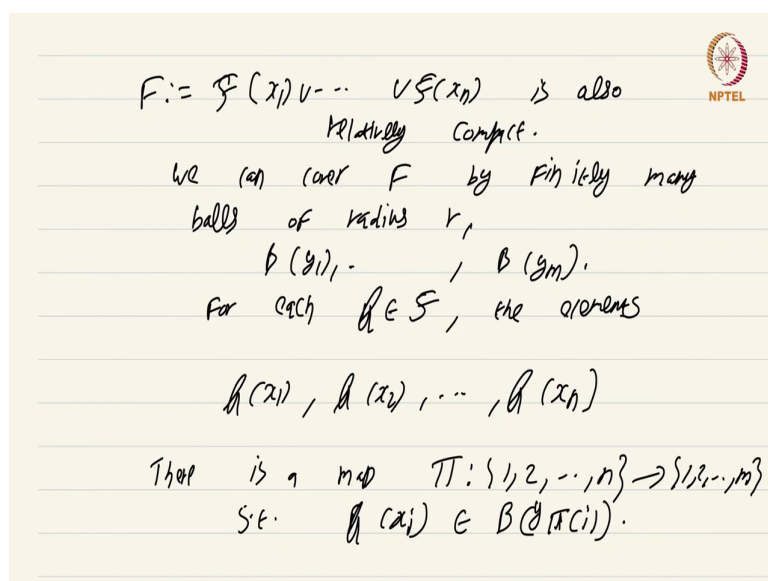 F := 𝓕(x₁) ∪ ... ∪ 𝓕(xₙ) is also
relatively compact.
NPTEL
We can cover F by finitely many
balls of radius r,
B(y₁), . , B(yₘ).
For each f ∈ 𝓕, the elements
f(x₁), f(x₂), ..., f(xₙ)
There is a map π: {1,2,...,n} → {1,2,...,m}
s.t. f(xᵢ) ∈ B(y π(i)).